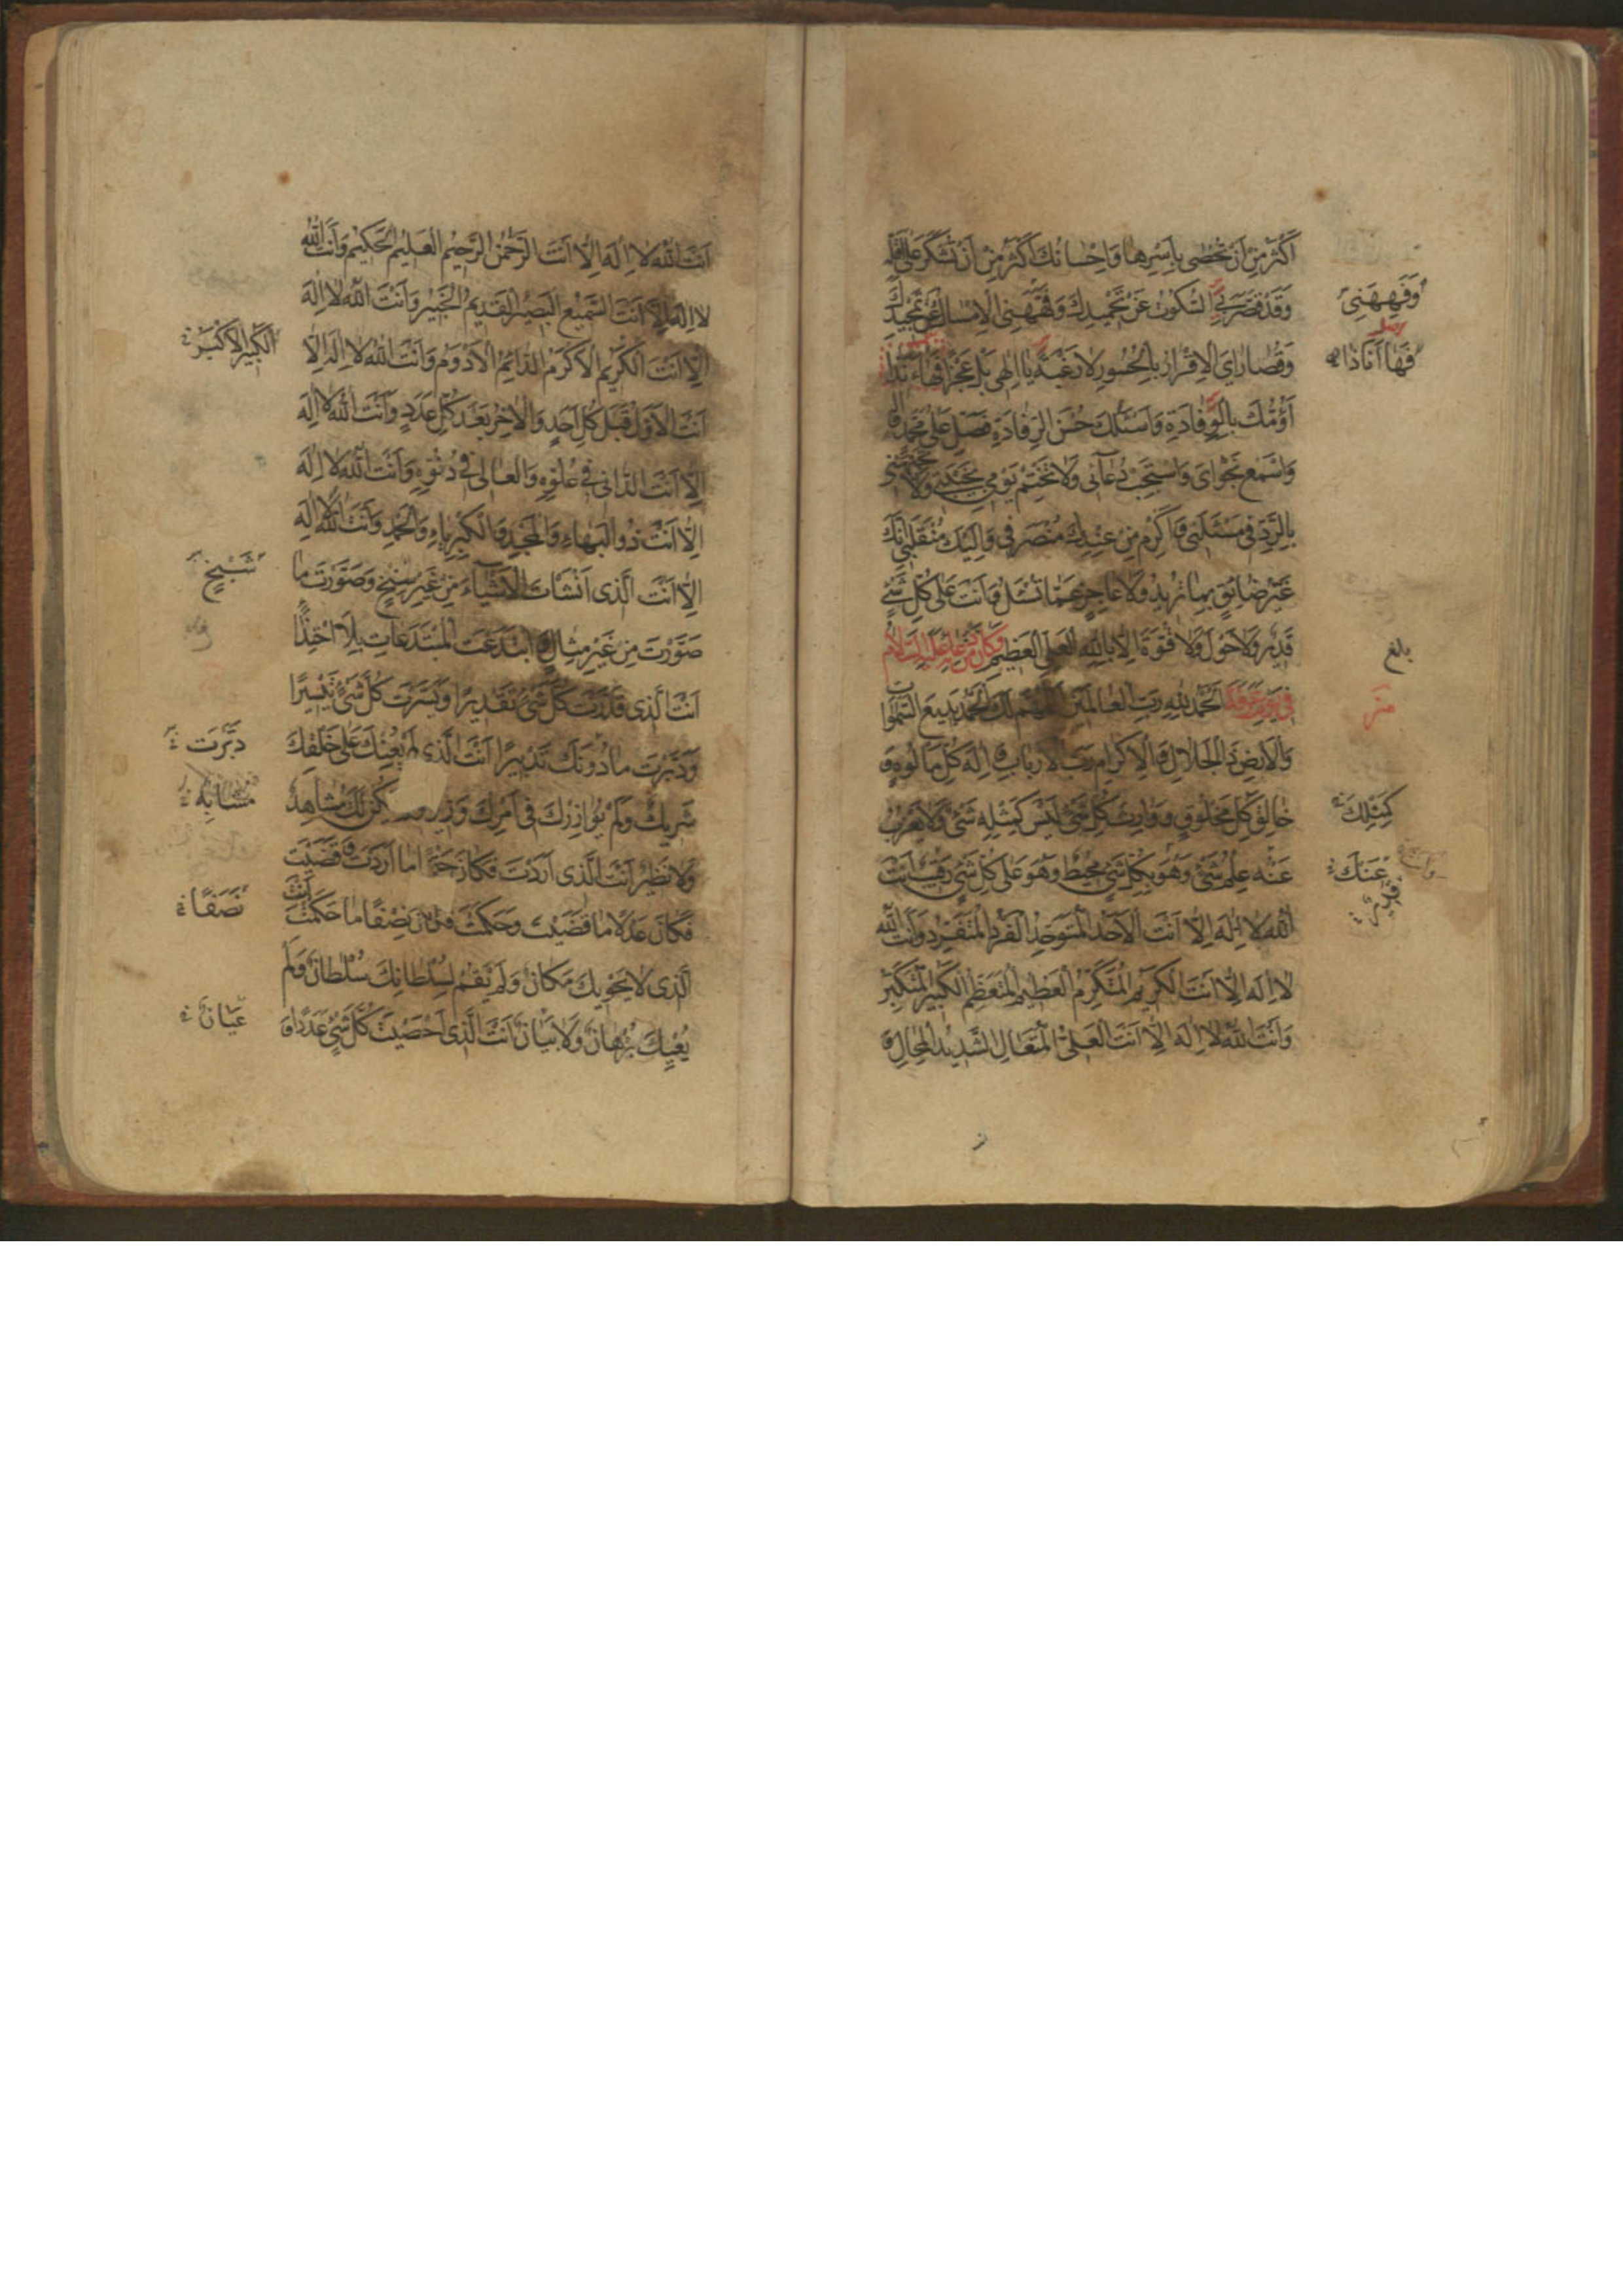 أَكْثَرُ مِنْ أَنْ تُحْصٰى بِأَسْرِهَا وَإِحْسَانُكَ أَكْثَرُ مِنْ أَنْ تُشْكَرَ عَلٰى أَقَلِّهِ
وَقَدْ قَصَّرَ بِيَ السُّكُوتُ عَنْ تَحْمِيدِكَ وَفَهَّهَنِى الْإِمْسَاكُ عَنْ تَمْجِيدِكَ
وَفَهِهَنِى
وَقُصَارَايَ الْإِقْرَارُ بِالْحُسُورِ لَا رَغْبَةً يَا إِلٰهِى بَلْ عَجْزًا فَهَا أَنَا ذَا
فَهَا أَنَا ذَا
أَؤُمُّكَ بِالْوِفَادَةِ وَأَسْئَلُكَ حُسْنَ الرِّفَادَةِ فَصَلِّ عَلٰى مُحَمَّدٍ وَ
وَاسْمَعْ نَجْوَايَ وَاسْتَجِبْ دُعَآئِى وَلَا تَخْتِمْ يَوْمِي بِخَيْبَتِى وَلَا تَجْبَهْنِى
بِالرَّدِّ فِى مَسْئَلَتِى وَأَكْرِمْ مِنْ عِنْدِكَ مُنْصَرَفِى وَإِلَيْكَ مُنْقَلَبِى إِنَّكَ
غَيْرُ ضَائِقٍ بِمَا تُرِيدُ وَلَا عَاجِزٍ عَمَّا تُسْئَلُ وَأَنْتَ عَلٰى كُلِّ شَىْءٍ
قَدِيرٌ وَلَا حَوْلَ وَلَا قُوَّةَ إِلَّا بِاللّٰهِ الْعَلِىِّ الْعَظِيمِ وَكَانَ مِنْ دُعَائِهِ عَلَيْهِ السَّلَامُ
بلغ
فِى يَوْمِ عَرَفَةَ الْحَمْدُ لِلّٰهِ رَبِّ الْعَالَمِينَ اللّٰهُمَّ لَكَ الْحَمْدُ بَدِيعَ السَّمٰوَاتِ
وَالْأَرْضِ ذَا الْجَلَالِ وَالْإِكْرَامِ رَبَّ الْأَرْبَابِ وَإِلٰهَ كُلِّ مَأْلُوهٍ وَ
خَالِقَ كُلِّ مَخْلُوقٍ وَوَارِثَ كُلِّ شَىْءٍ لَيْسَ كَمِثْلِهِ شَىْءٌ وَلَا يَعْزُبُ
كَمِثْلِكَ
عَنْهُ عِلْمُ شَىْءٍ وَهُوَ بِكُلِّ شَىْءٍ مُحِيطٌ وَهُوَ عَلٰى كُلِّ شَىْءٍ رَقِيبٌ أَنْتَ
عَنْكَ
اللّٰهُ لَا إِلٰهَ إِلَّا أَنْتَ الْأَحَدُ الْمُتَوَحِّدُ الْفَرْدُ الْمُتَفَرِّدُ وَأَنْتَ اللّٰهُ
لَا إِلٰهَ إِلَّا أَنْتَ الْكَرِيمُ الْمُتَكَرِّمُ الْعَظِيمُ الْمُتَعَظِّمُ الْكَبِيرُ الْمُتَكَبِّرُ
وَأَنْتَ اللّٰهُ لَا إِلٰهَ إِلَّا أَنْتَ الْعَلِىُّ الْمُتَعَالِ الشَّدِيدُ الْمِحَالِ وَ
أَنْتَ اللّٰهُ لَا إِلٰهَ إِلَّا أَنْتَ الرَّحْمٰنُ الرَّحِيمُ الْعَلِيمُ الْحَكِيمُ وَأَنْتَ اللّٰهُ
لَا إِلٰهَ إِلَّا أَنْتَ السَّمِيعُ الْبَصِيرُ الْقَدِيمُ الْخَبِيرُ وَأَنْتَ اللّٰهُ لَا إِلٰهَ
إِلَّا أَنْتَ الْكَرِيمُ الْأَكْرَمُ الدَّائِمُ الْأَدْوَمُ وَأَنْتَ اللّٰهُ لَا إِلٰهَ إِلَّا
الْكَبِيرُ الْأَكْبَرُ
أَنْتَ الْأَوَّلُ قَبْلَ كُلِّ أَحَدٍ وَالْآخِرُ بَعْدَ كُلِّ عَدَدٍ وَأَنْتَ اللّٰهُ لَا إِلٰهَ
إِلَّا أَنْتَ الدَّانِى فِى عُلُوِّهِ وَالْعَالِى فِى دُنُوِّهِ وَأَنْتَ اللّٰهُ لَا إِلٰهَ
إِلَّا أَنْتَ ذُو الْبَهَاءِ وَالْمَجْدِ وَالْكِبْرِيَاءِ وَالْحَمْدِ وَأَنْتَ اللّٰهُ لَا إِلٰهَ
إِلَّا أَنْتَ الَّذِى أَنْشَأْتَ الْأَشْيَآءَ مِنْ غَيْرِ سِنْخٍ وَصَوَّرْتَ مَا
شَبَحٍ
صَوَّرْتَ مِنْ غَيْرِ مِثَالٍ وَابْتَدَعْتَ الْمُبْتَدَعَاتِ بِلَا احْتِذَآءٍ
أَنْتَ الَّذِى قَدَّرْتَ كُلَّ شَىْءٍ تَقْدِيرًا وَيَسَّرْتَ كُلَّ شَىْءٍ تَيْسِيرًا
وَدَبَّرْتَ مَا دُونَكَ تَدْبِيرًا أَنْتَ الَّذِى لَمْ يُعِنْكَ عَلٰى خَلْقِكَ
دَبَّرْتَ
شَرِيكٌ وَلَمْ يُوَازِرْكَ فِى أَمْرِكَ وَزِيرٌ يَكُنْ لَكَ مُشَاهِدٌ
وَلَا نَظِيرٌ أَنْتَ الَّذِى أَرَدْتَ فَكَانَ حَتْمًا مَا أَرَدْتَ وَقَضَيْتَ
فَكَانَ عَدْلًا مَا قَضَيْتَ وَحَكَمْتَ فَكَانَ نِصْفًا مَا حَكَمْتَ أَنْتَ
نَصَفًا
الَّذِى لَا يَحْوِيكَ مَكَانٌ وَلَمْ يَقُمْ لِسُلْطَانِكَ سُلْطَانٌ وَلَمْ
يُعْيِكَ بُرْهَانٌ وَلَا بَيَانٌ أَنْتَ الَّذِى أَحْصَيْتَ كُلَّ شَىْءٍ عَدَدًا وَ